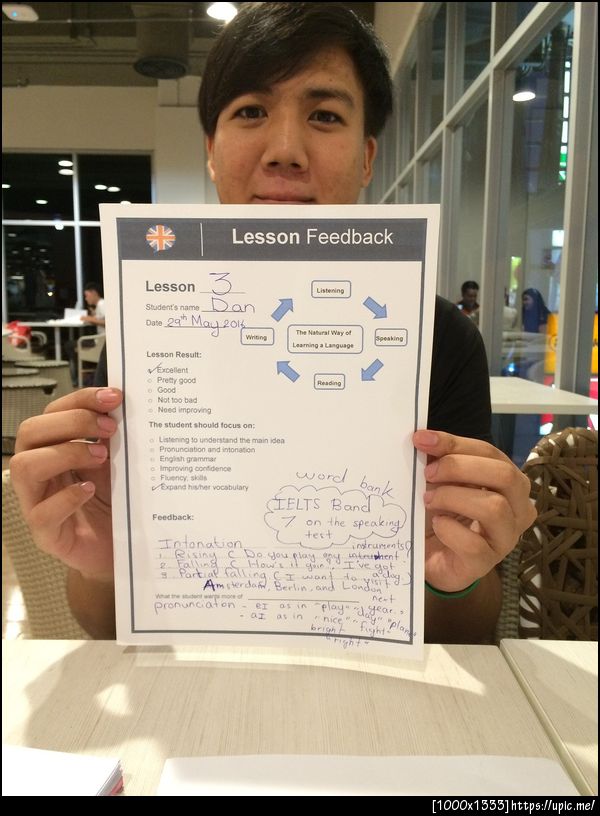 Lesson Feedback
Lesson 3
Student's name Dan
Date 29th May 2016
Listening
Speaking
Reading
Writing
The Natural Way of
Learning a Language
Lesson Result:
Excellent
Pretty good
Good
Not too bad
Need improving
The student should focus on:
Listening to understand the main idea
Pronunciation and intonation
English grammar
Improving confidence
Fluency, skills
Expand his/her vocabulary
word bank
IELTS Band
7 on the speaking
test
Feedback:
Intonation
instruments?
1. Rising C Do you play any
2. Falling C How's it goin... I've got
a dog.
3. Partial falling C I want to visit
Amsterdam, Berlin, and London
next
What the student wants more of
year.
pronunciaton - eI as in "play" "day" "plane"
- aI as in "nice" "fight"
bright
"right"
[1000x1333]https://upic.me/